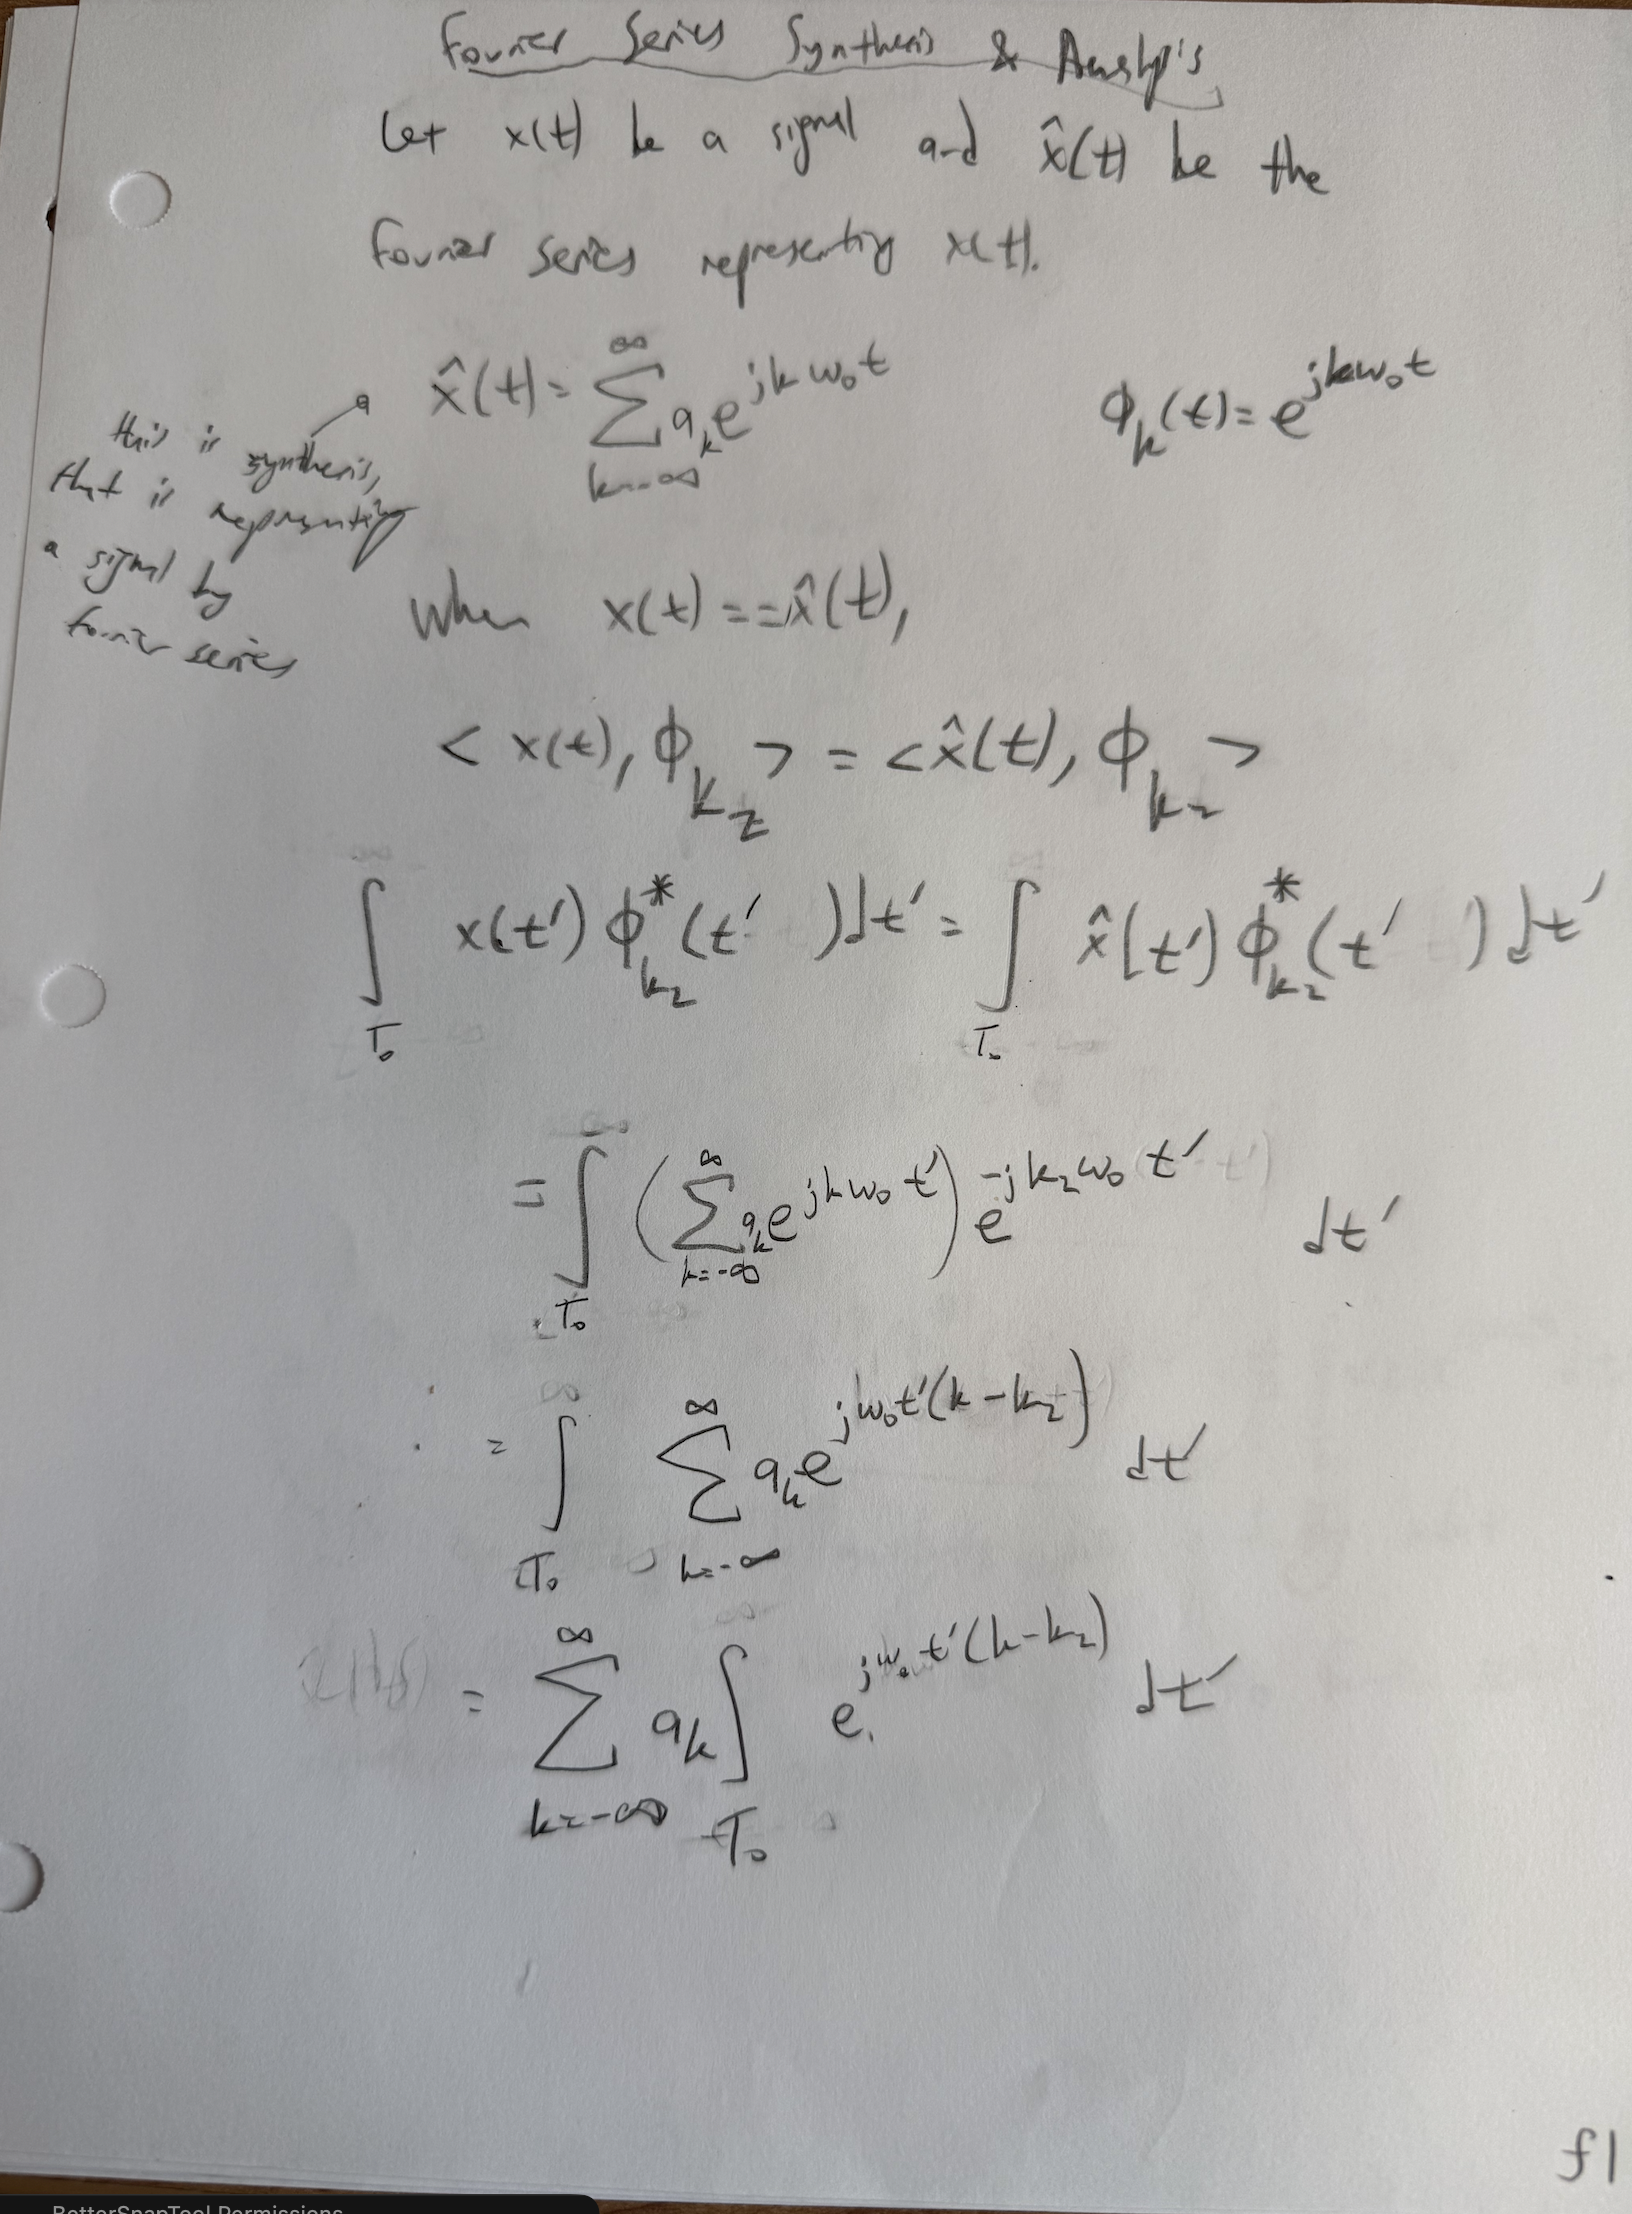 Fourier Series Synthesis & Analysis
Let x(t) be a signal and x̂(t) be the
Fourier series representing x(t).
x̂(t) = ∑_{k=-∞}^{∞} a_k e^{jkω₀t}
ϕ_k(t) = e^{jkω₀t}
this is
synthesis,
that is
representing
a signal by
fourier series
When x(t) == x̂(t),
< x(t), ϕ_{k₂} > = < x̂(t), ϕ_{k₂} >
∫_{T₀} x(t') ϕ*_{k₂}(t') dt' = ∫_{T₀} x̂(t') ϕ*_{k₂}(t') dt'
= ∫_{T₀} ( ∑_{k=-∞}^{∞} a_k e^{jkω₀t'} ) e^{-jk₂ω₀t'} dt'
= ∫_{T₀} ∑_{k=-∞}^{∞} a_k e^{jω₀t'(k-k₂)} dt'
= ∑_{k=-∞}^{∞} a_k ∫_{T₀} e^{jω₀t'(k-k₂)} dt'
f1
BetterSnapTool Permissions